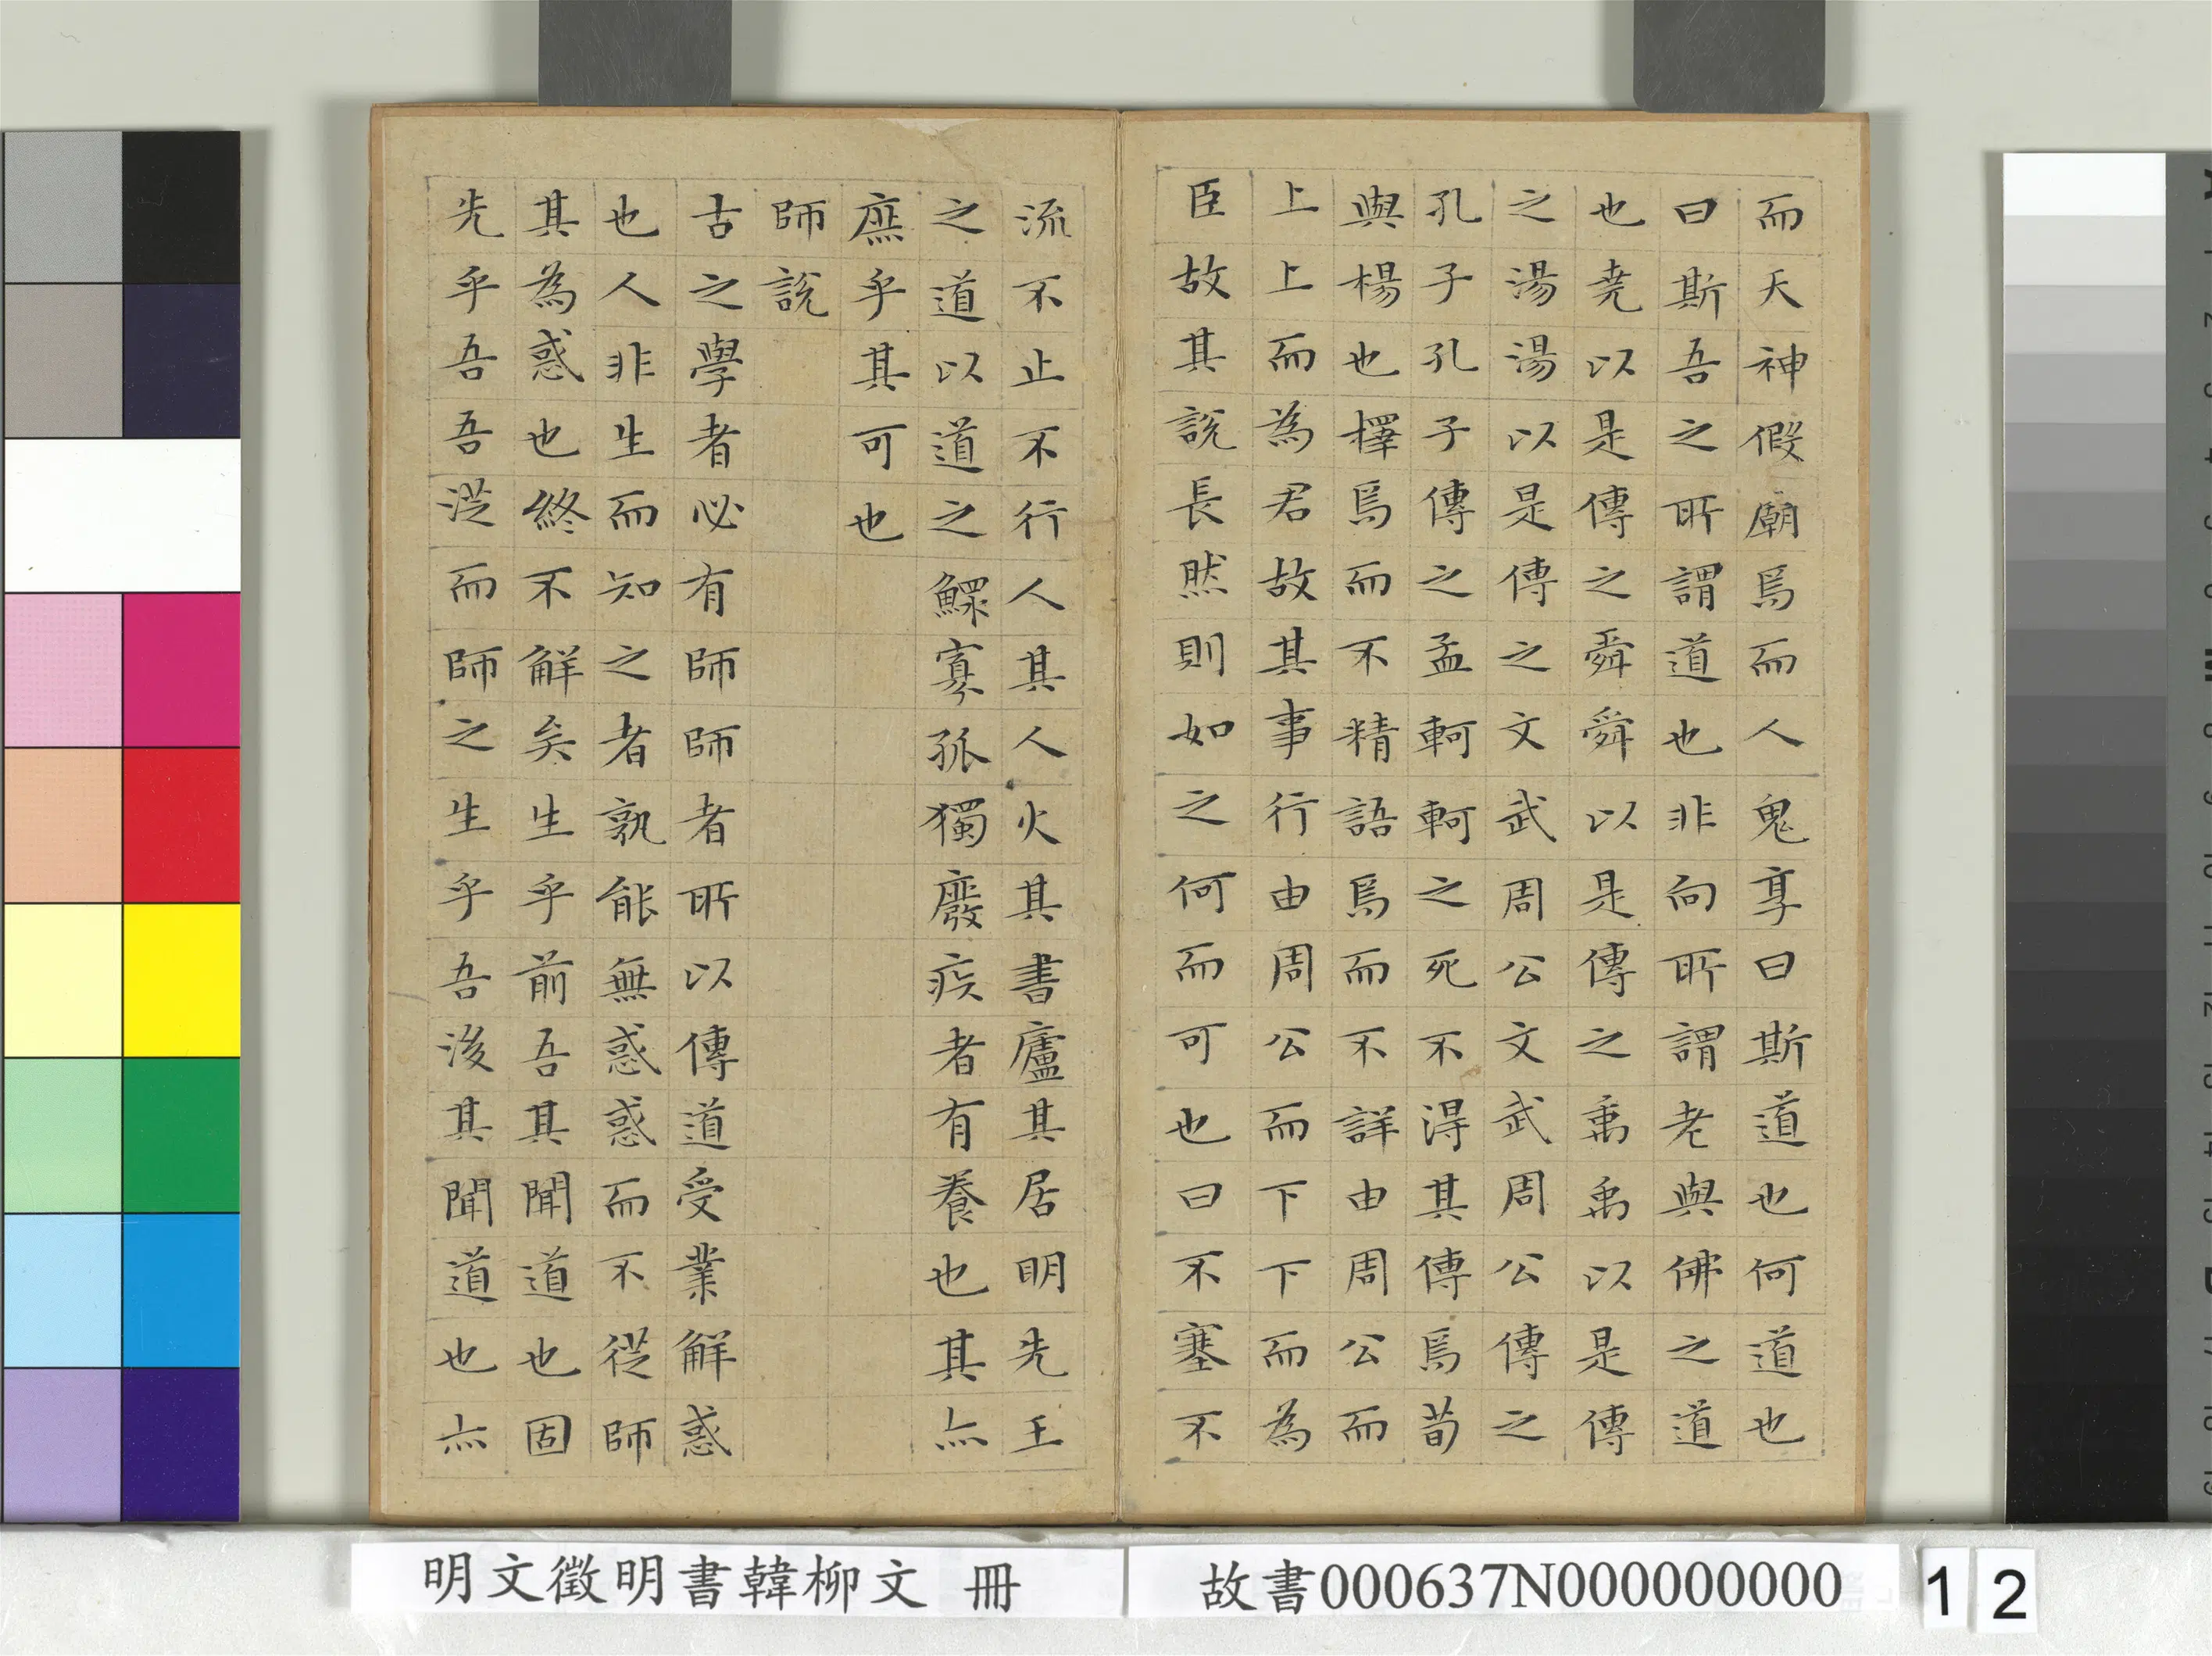 而天神假廟焉而人鬼享曰斯道也何道也
曰斯吾之所謂道也非向所謂老與佛之道
也堯以是傳之舜舜以是傳之禹禹以是傳
之湯湯以是傳之文武周公文武周公傳之
孔子孔子傳之孟軻軻之死不得其傳焉荀
與楊也擇焉而不精語焉而不詳由周公而
上上而為君故其事行由周公而下下而為
臣故其說長然則如之何而可也曰不塞不
流不止不行人其人火其書廬其居明先王
之道以道之鰥寡孤獨廢疾者有養也其亦
庶乎其可也
師說
古之學者必有師師者所以傳道受業解惑
也人非生而知之者孰能無惑惑而不從師
其為惑也終不解矣生乎前吾其聞道也固
先乎吾吾從而師之生乎吾後其聞道也亦
明文徵明書韓柳文 冊
故書000637N000000000
12